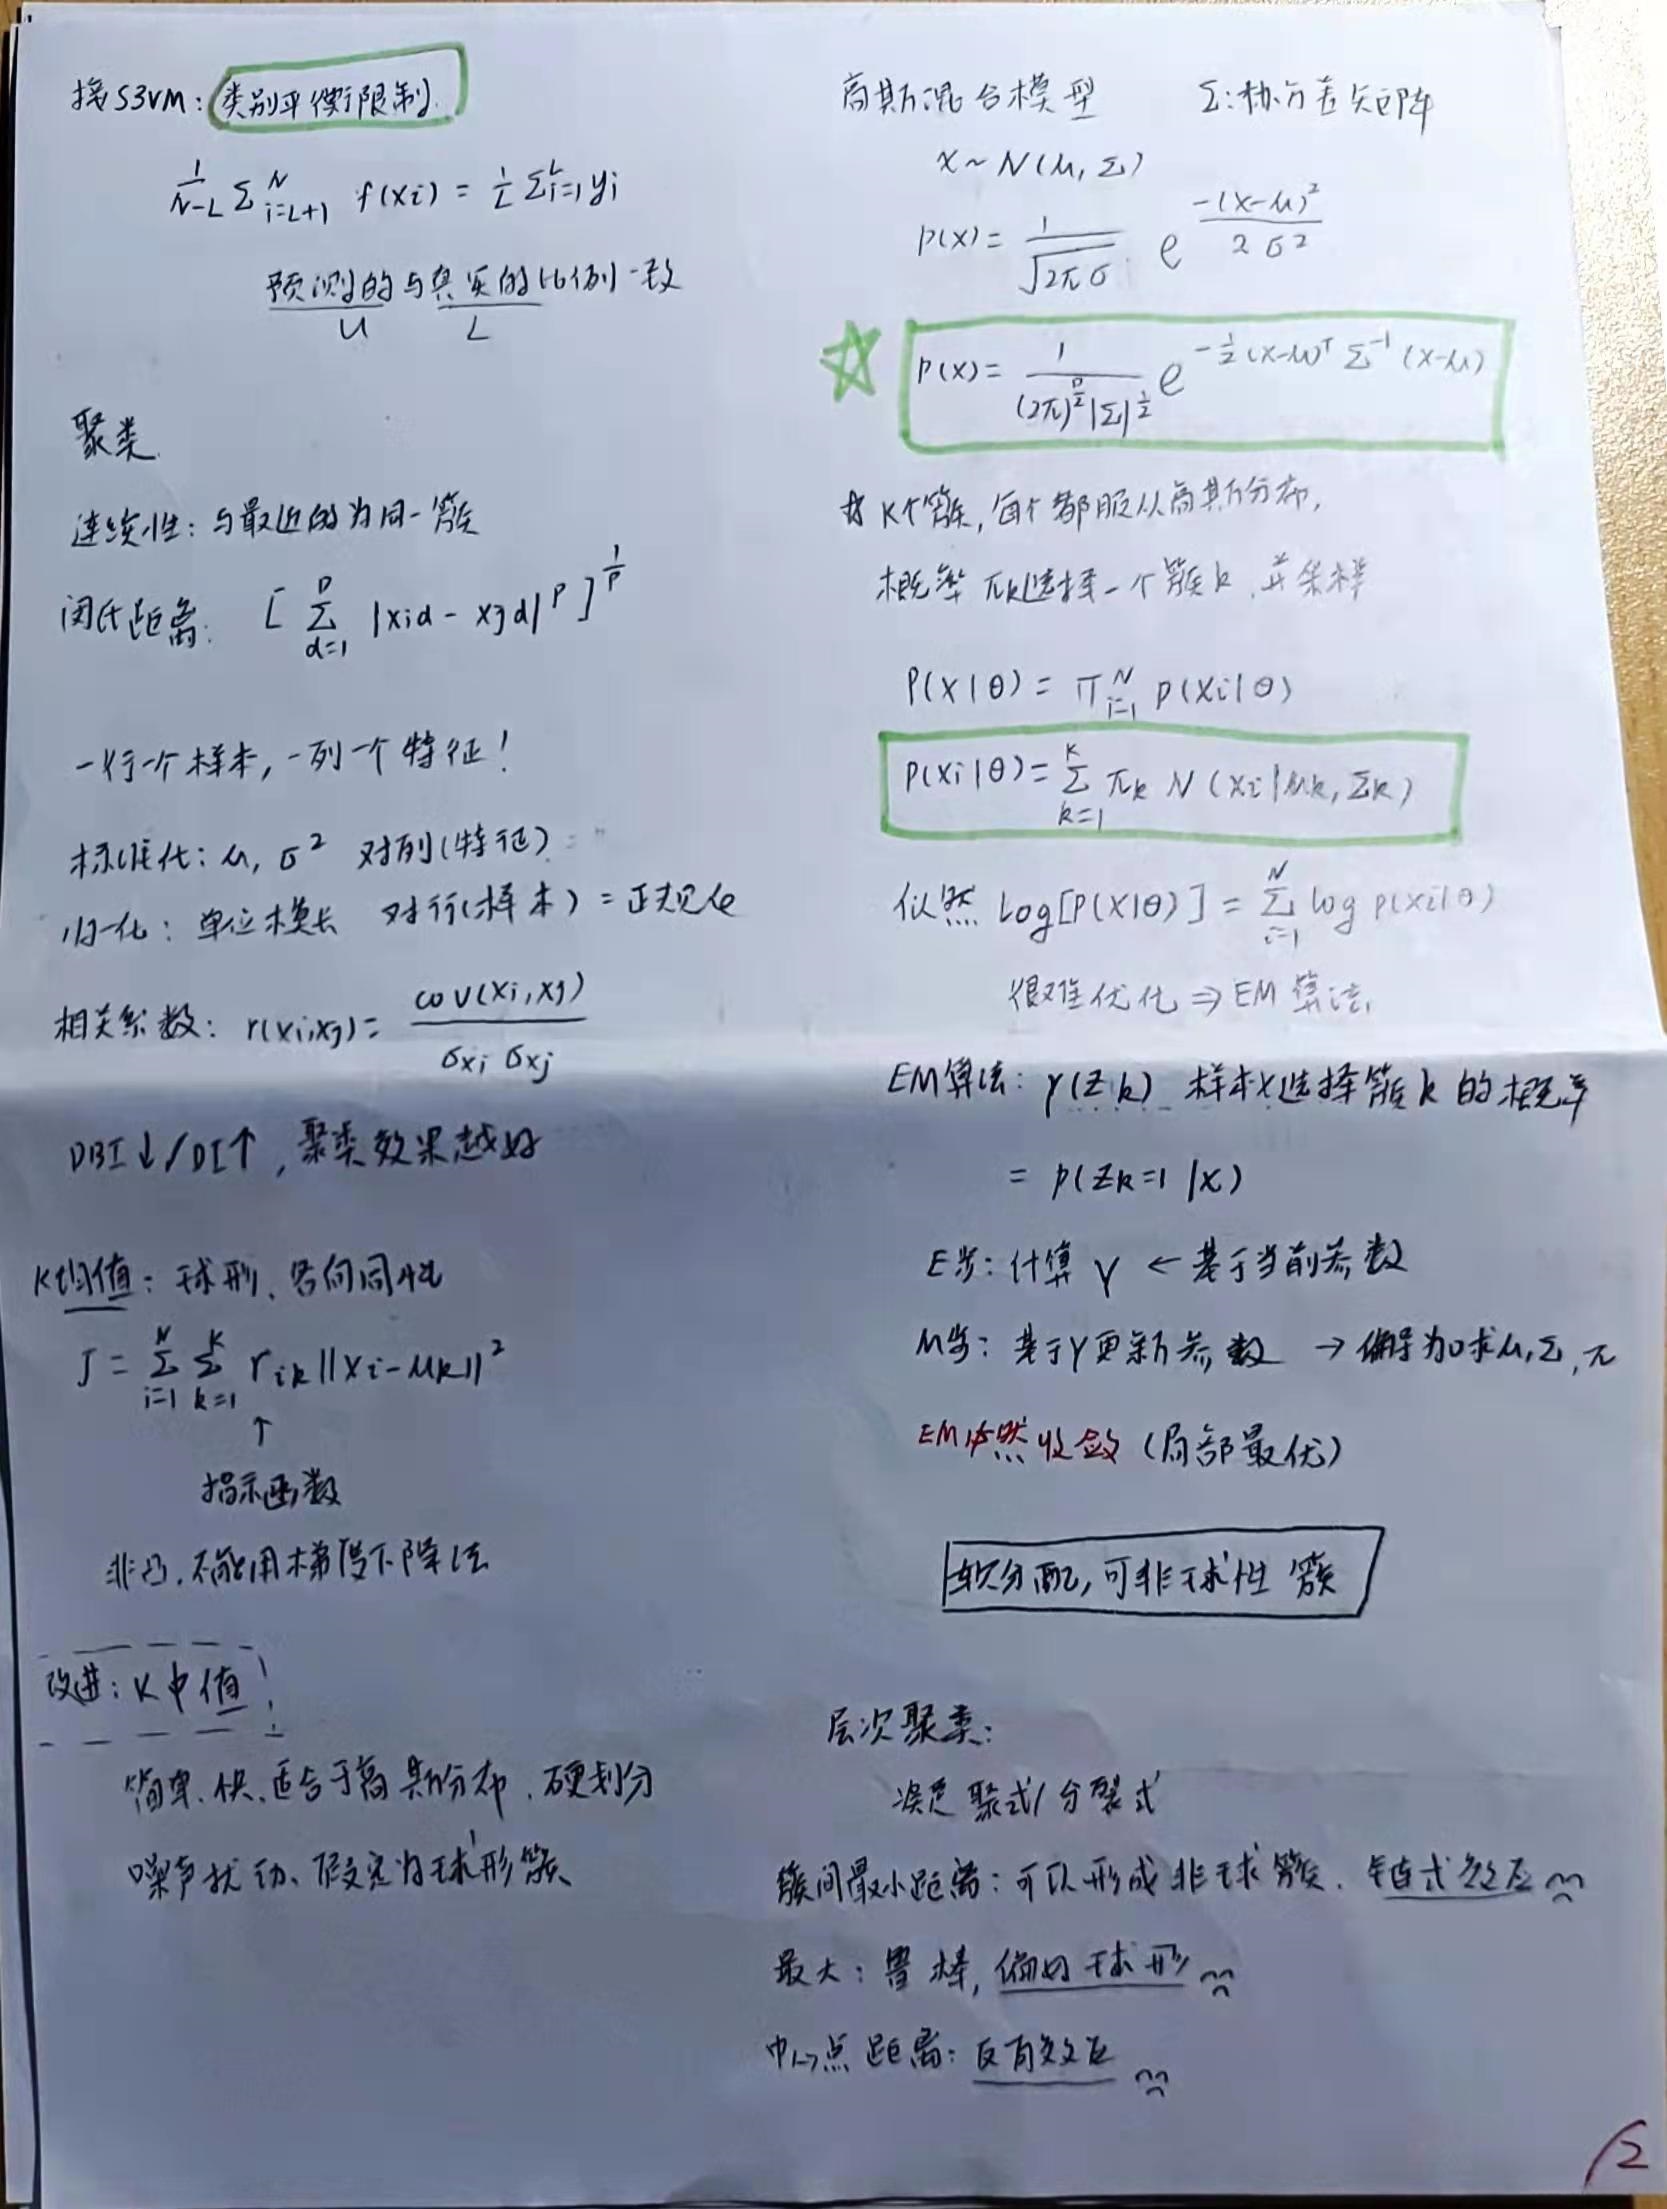 接S3VM：类别平衡限制
1/(N-L) Σ_{i=L+1}^{N} f(xi) = 1/L Σ_{i=1}^{L} yi
预测的与真实的比例一致
U L
聚类
连续性：与最近的为同一簇
闵氏距离：[ Σ_{d=1}^{D} |xid - xjd|^p ]^{1/p}
一行一个样本，一列一个特征！
标准化：μ, σ² 对列（特征）
归一化：单位模长 对行（样本）=正规化
相关系数：r(xi,xj) = cov(xi,xj) / (σxi σxj)
DBI↓/DI↑，聚类效果越好
K均值：球形、各向同性
J = Σ_{i=1}^{N} Σ_{k=1}^{K} rik ||xi - μk||²
↑
指示函数
非凸，不能用梯度下降法
改进：K中值
简单、快、适合于高斯分布、硬划分
噪声扰动、假定为球形簇
高斯混合模型 Σ：协方差矩阵
x ~ N(μ, Σ)
p(x) = 1/√(2πσ) e^{-(x-μ)²/2σ²}
☆ p(x) = 1/((2π)^{D/2} |Σ|^{1/2}) e^{-1/2 (x-μ)^T Σ^{-1} (x-μ)}
K个簇，每个都服从高斯分布，
概率πk选择一个簇k，并采样
P(X|θ) = Π_{i=1}^{N} p(xi|θ)
p(xi|θ) = Σ_{k=1}^{K} πk N(xi|μk, Σk)
似然 log[P(X|θ)] = Σ_{i=1}^{N} log p(xi|θ)
很难优化 ⇒ EM算法
EM算法：γ(zk) 样本x选择簇k的概率
= p(zk=1|x)
E步：计算γ ← 基于当前参数
M步：基于γ更新参数 → 偏导为0求μ,Σ,π
EM必然收敛（局部最优）
软分配，可非球性簇
层次聚类：
凝聚式/分裂式
簇间最小距离：可以形成非球簇、链式效应
最大：鲁棒，偏好球形
中心点距离：反向效应
12